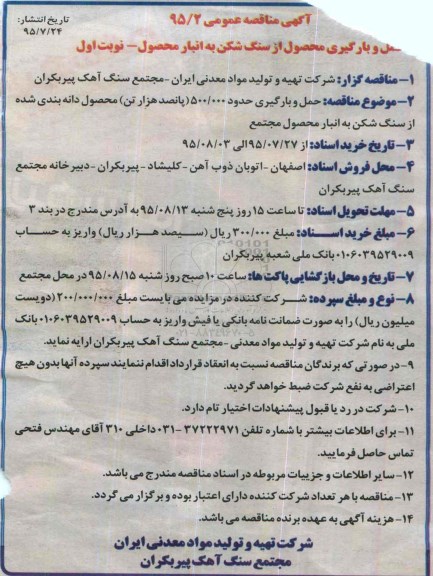 آگهی مناقصه عمومی ۹۵/۲
تاریخ انتشار:
۹۵/۷/۲۴
حمل و بارگیری محصول از سنگ شکن به انبار محصول – نوبت اول
۱- مناقصه گزار: شرکت تهیه و تولید مواد معدنی ایران - مجتمع سنگ آهک پیربکران
۲- موضوع مناقصه: حمل و بارگیری حدود ۵۰۰/۰۰۰ (پانصد هزار تن) محصول دانه بندی شده
از سنگ شکن به انبار محصول مجتمع
۳- تاریخ خرید اسناد: از ۹۵/۰۷/۲۷ الی ۹۵/۰۸/۰۳
۴- محل فروش اسناد: اصفهان - اتوبان ذوب آهن - کلیشاد - پیربکران - دبیرخانه مجتمع
سنگ آهک پیربکران
۵- مهلت تحویل اسناد: تا ساعت ۱۵ روز پنج شنبه ۹۵/۰۸/۱۳ به آدرس مندرج در بند ۳
۶- مبلغ خرید اسناد: مبلغ ۳۰۰/۰۰۰ ریال (سیصد هزار ریال) واریز به حساب
۰۱۰۶۰۳۹۵۲۹۰۰۹ بانک ملی شعبه پیربکران
۷- تاریخ و محل بازگشایی پاکت ها: ساعت ۱۰ صبح روز شنبه ۹۵/۰۸/۱۵ در محل مجتمع
۸- نوع و مبلغ سپرده: شرکت کننده در مزایده می بایست مبلغ ۲۰۰/۰۰۰/۰۰۰ (دویست
میلیون ریال) را به صورت ضمانت نامه بانکی یا فیش واریز به حساب ۰۱۰۶۰۳۹۵۲۹۰۰۹ بانک
ملی به نام شرکت تهیه و تولید مواد معدنی - مجتمع سنگ آهک پیربکران ارایه نماید.
۹- در صورتی که برندگان مناقصه نسبت به انعقاد قرارداد اقدام ننمایند سپرده آنها بدون هیچ
اعتراضی به نفع شرکت ضبط خواهد گردید.
۱۰- شرکت در رد یا قبول پیشنهادات اختیار تام دارد.
۱۱- برای اطلاعات بیشتر با شماره تلفن ۳۷۲۲۲۹۷۱-۰۳۱ داخلی ۳۱۰ آقای مهندس فتحی
تماس حاصل فرمایید.
۱۲- سایر اطلاعات و جزییات مربوطه در اسناد مناقصه مندرج می باشد.
۱۳- مناقصه با هر تعداد شرکت کننده دارای اعتبار بوده و برگزار می گردد.
۱۴- هزینه آگهی به عهده برنده مناقصه می باشد.
شرکت تهیه و تولید مواد معدنی ایران
مجتمع سنگ آهک پیربکران